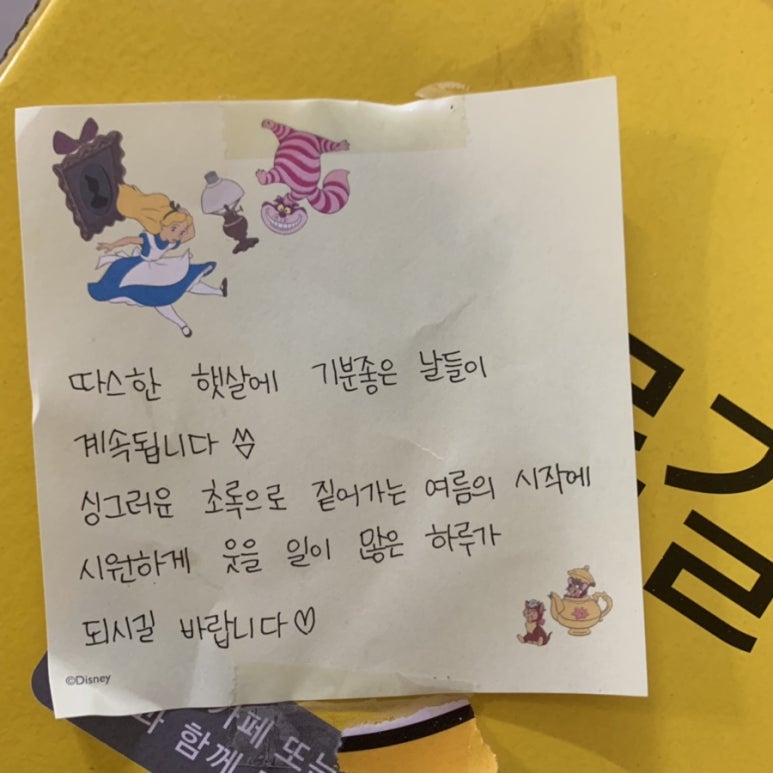 따스한 햇살에 기분좋은 날들이
계속됩니다
싱그러운 초록으로 짙어가는 여름의 시작에
시원하게 웃을 일이 많은 하루가
되시길 바랍니다♡
©Disney
카페 또는
함께